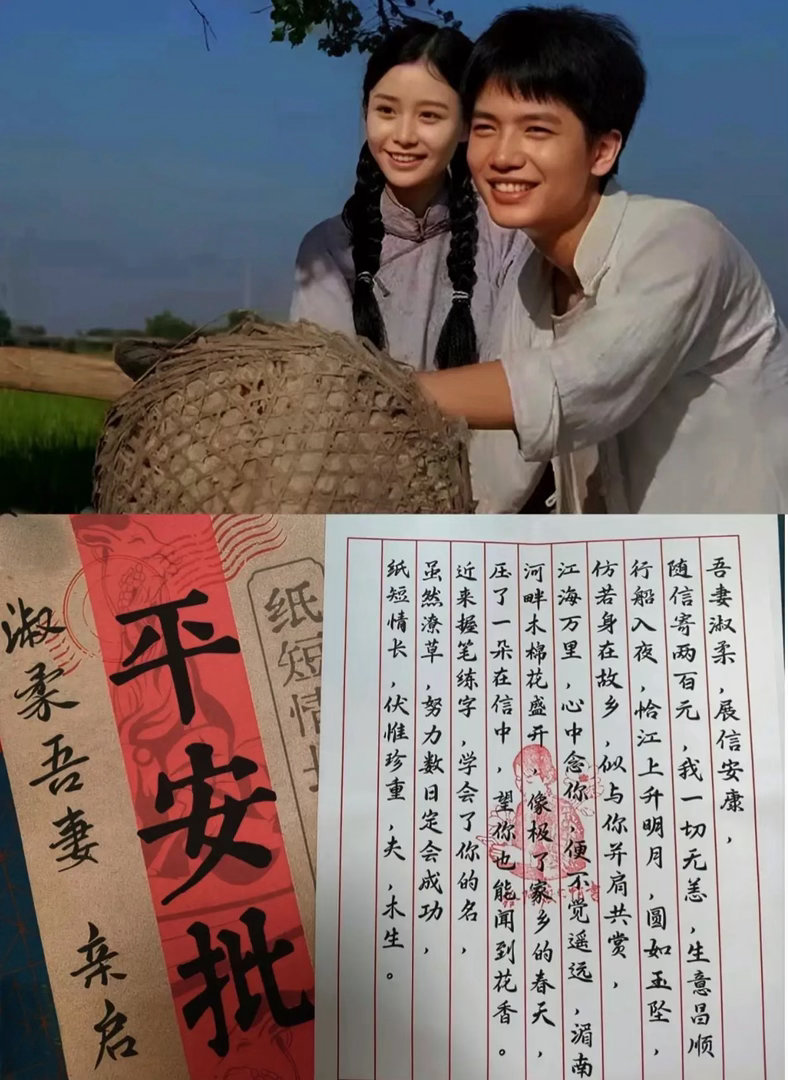 淑柔吾妻 亲启
平安批
纸短情长
吾妻淑柔，展信安康，
随信寄两百元，我一切无恙，生意昌顺
行船入夜，恰江上升明月，圆如玉坠，
仿若身在故乡，似与你并肩共赏，
江海万里，心中念你，便不觉遥远，湄南
河畔木棉花盛开，像极了家乡的春天，
压了一朵在信中，望你也能闻到花香。
近来握笔练字，学会了你的名，
虽然潦草，努力数日定会成功，
纸短情长，伏惟珍重，夫，木生。